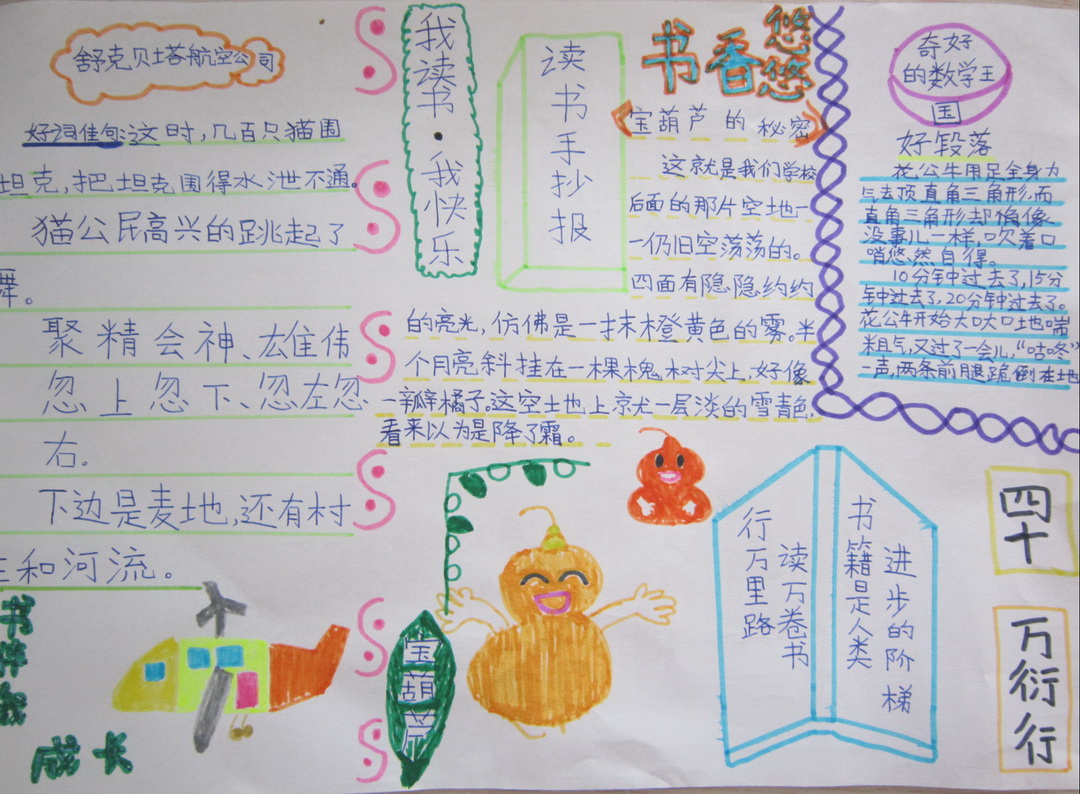 舒克贝塔航空公司
好词佳句:这时,几百只猫围
坦克,把坦克围得水泄不通。
猫公民高兴的跳起了
舞。
聚精会神、雄伟
忽上忽下、忽左忽
右。
下边是麦地,还有村
庄和河流。
书伴我
成长
我读书·我快乐
读书手抄报
书香悠悠
宝葫芦的秘密
这就是我们学校
后面的那片空地一
一仍旧空荡荡的。
四面有隐隐约约
的亮光,仿佛是一抹橙黄色的雾。半
个月亮斜挂在一棵槐树尖上,好像
一瓣橘子。这空土地上京尤一层淡的雪青色,
看来以为是降了霜。
宝葫芦
奇妙
的数学王
国
好段落
花公牛用足全身力
气去顶直角三角形,而
直角三角形却偷像
没事儿一样,吹着口
哨悠然自得。
10分钟过去了,15分
钟过去了,20分钟过去了。
花公牛开始大口大口地喘
粗气,又过了一会儿,“咕咚”
一声,两条前腿跪倒在地
行万里路
读万卷书
书籍是人类
进步的阶梯
四十
万衍行